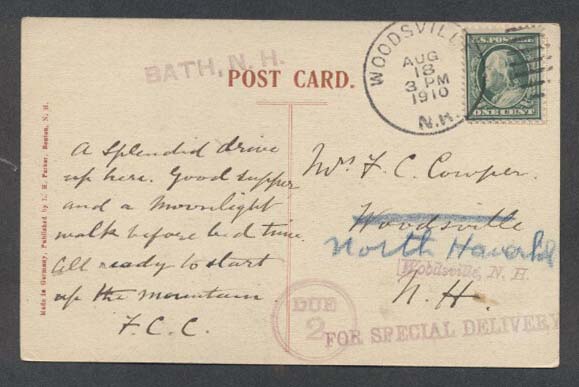 BATH, N. H.
POST CARD.
WOODSVILLE
AUG
18
3 PM
1910
N.H.
U.S. POSTAGE
ONE CENT
Made in Germany, Published by I. H. Parker, Boston, N. H.
A splendid drive
up here. Good supper
and a Moonlight
walk before bed time.
All ready to start
up the mountain.
F.C.C.
Mrs F. C. Cowper.
Woodsville
North Haverhil
Woodsville, N. H.
N. H.
DUE
2
FOR SPECIAL DELIVERY